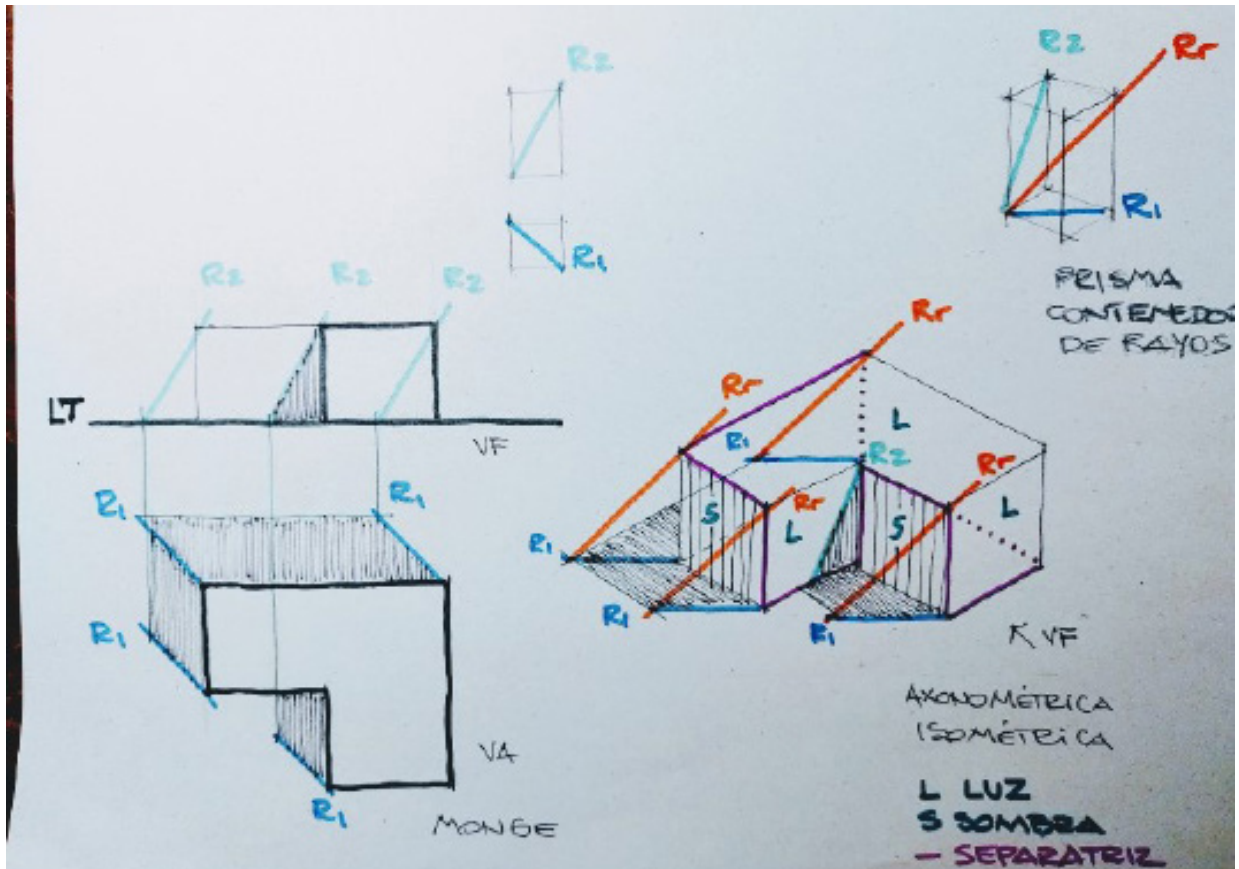 R2
R1
R2 R2 R2
LT
VF
R1
R1
R1
R1
VA
MONGE
R2
Rr
R1
PRISMA
CONTENEDOR
DE RAYOS
Rr
Rr
R1
L
R2
Rr
Rr
S
L
S
L
R1
R1
R1
VF
AXONOMÉTRICA
ISOMÉTRICA
L LUZ
S SOMBRA
— SEPARATRIZ